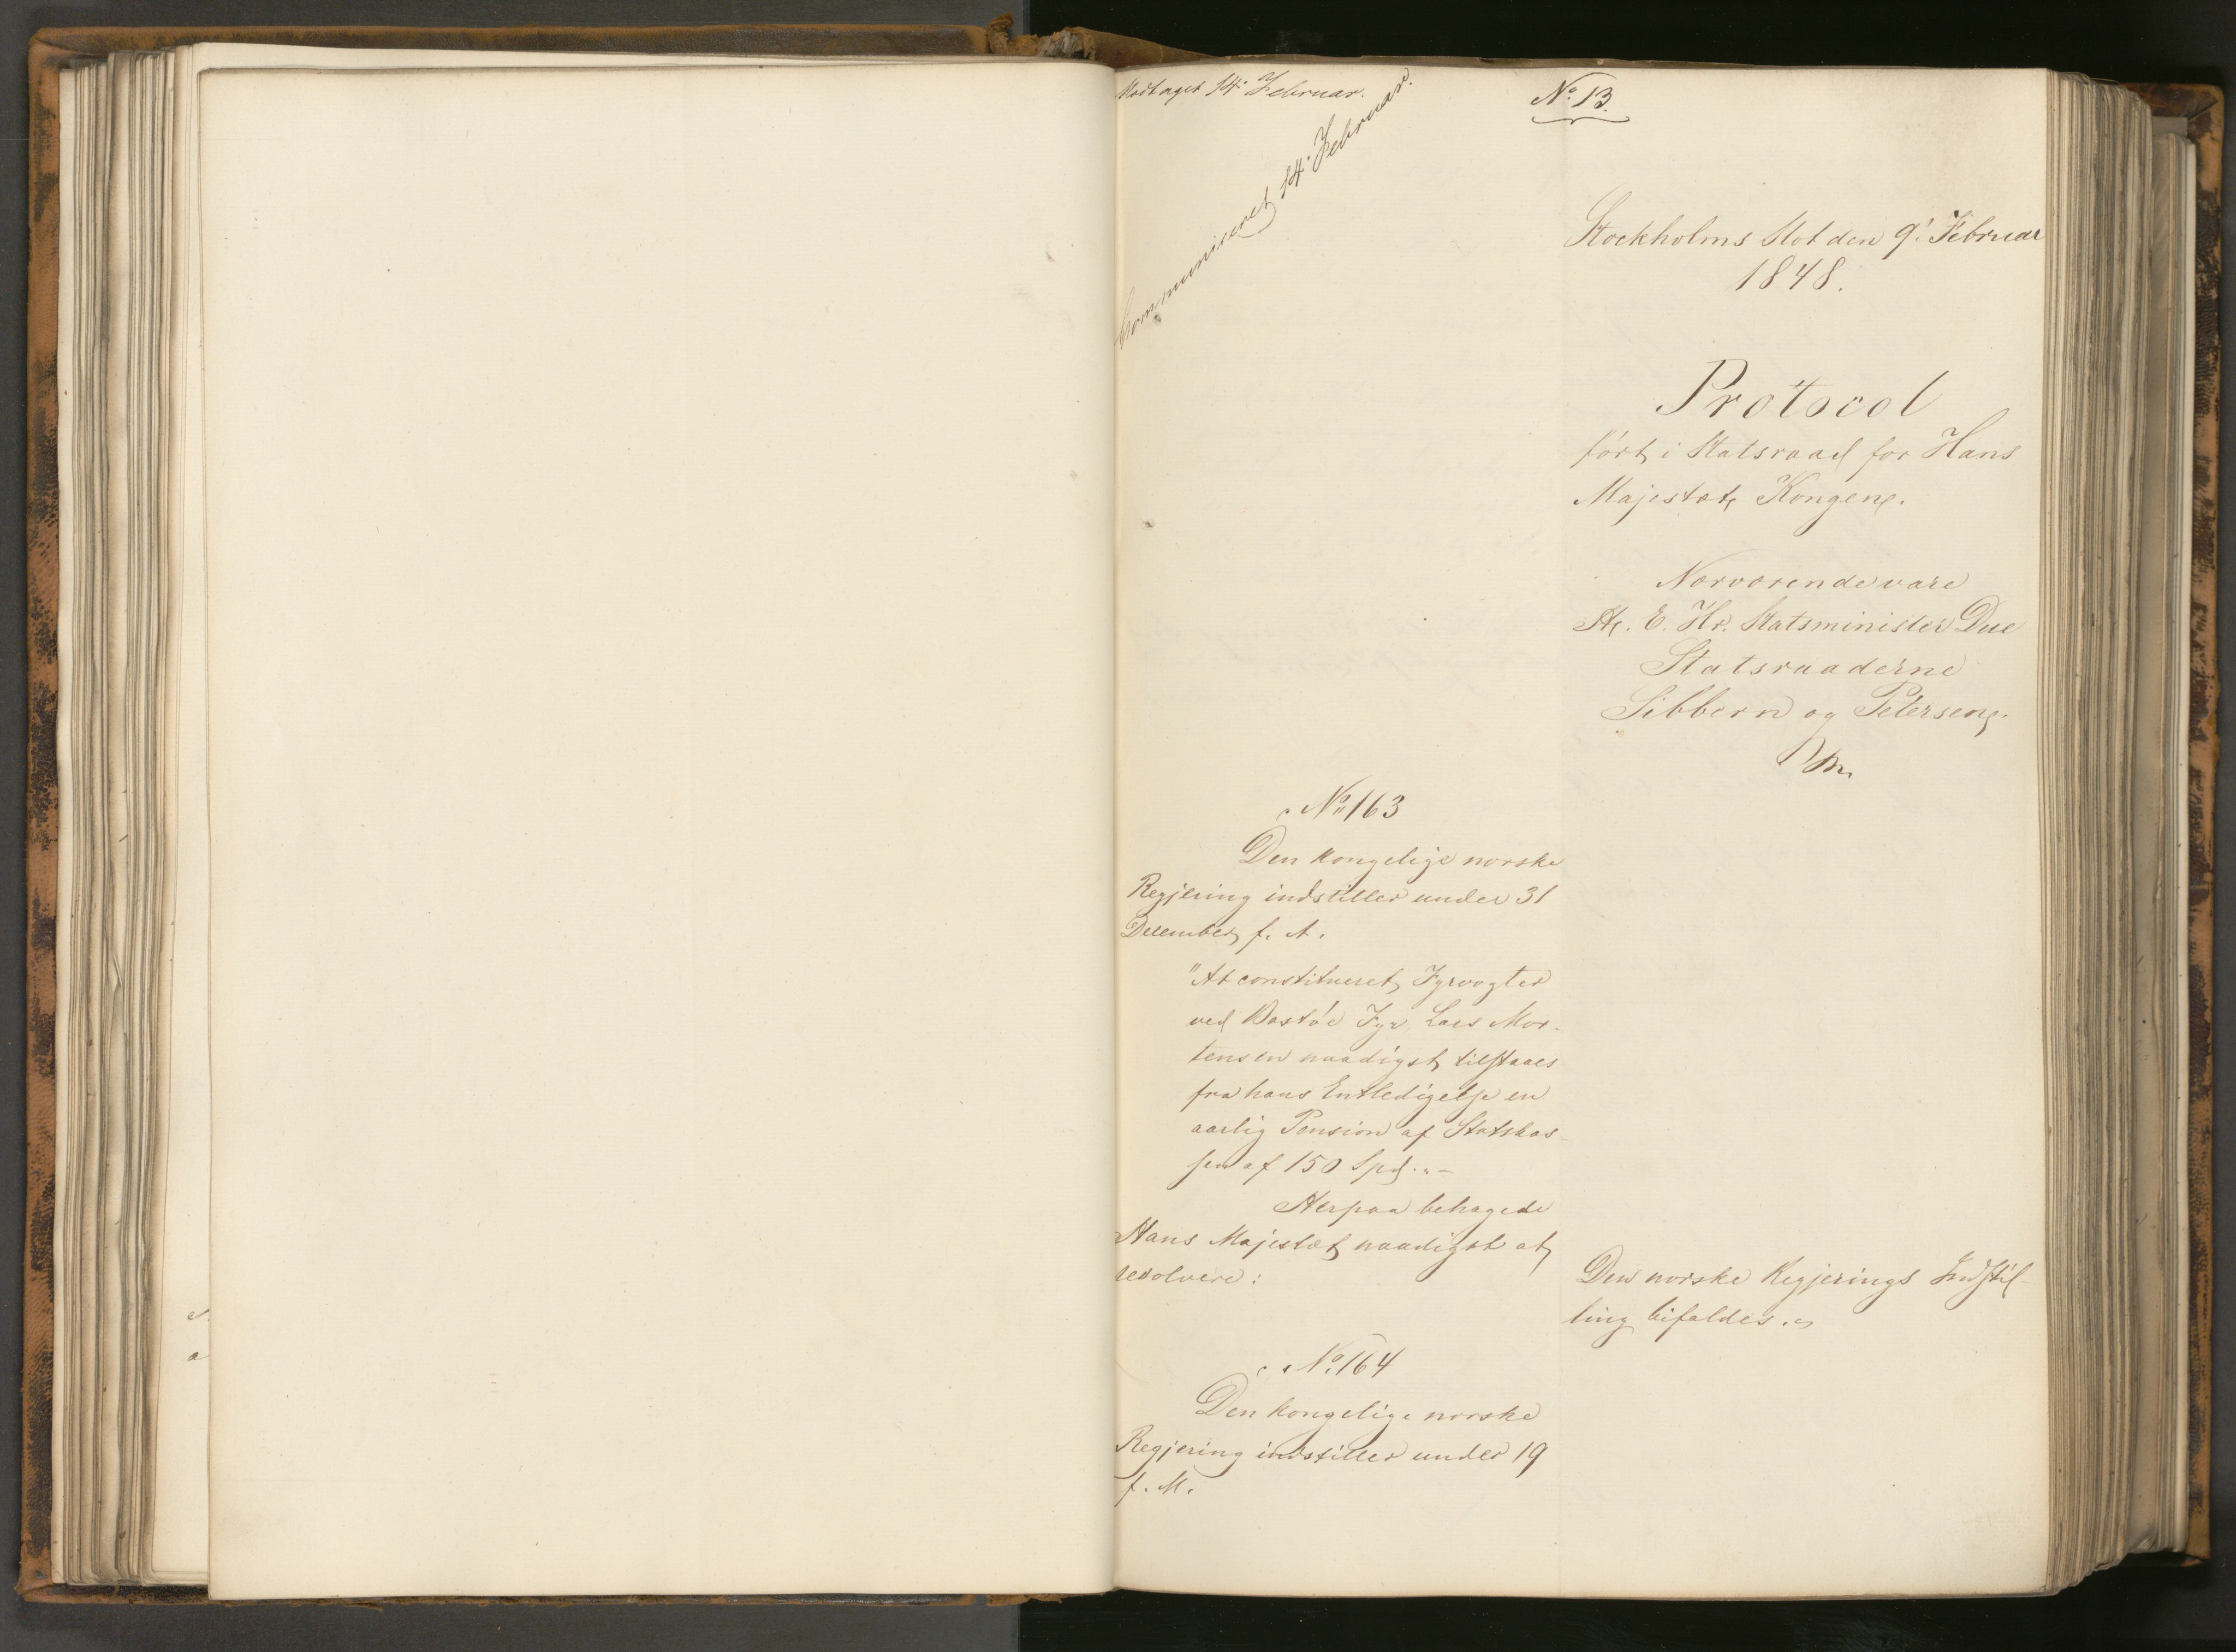 Modtaget 14. Februar.
Communiceret 14. Februar.
No. 13.
Stockholms Slot den 9. Februar
1848.
Protocol
ført i Statsraad for Hans
Majestæt Kongen.
Nærværende vare
H. E. Hr. Statsminister Due
Statsraaderne
Sibbern og Petersen.
No. 163
Den kongelige norske
Regjering indstiller under 31
December f. A.
"At constitueret Fyrvogter
ved Bastøe Fyr, Lars Mor-
tensen naadigst tilstaaes
fra hans Entledigelse en
aarlig Pension af Statskas-
sen af 150 Spd."-
Herpaa behagede
Hans Majestæt naadigst at
resolvere:
Den norske Regjerings Indstil-
ling bifaldes.
No. 164
Den kongelige norske
Regjering indstiller under 19
f. M.